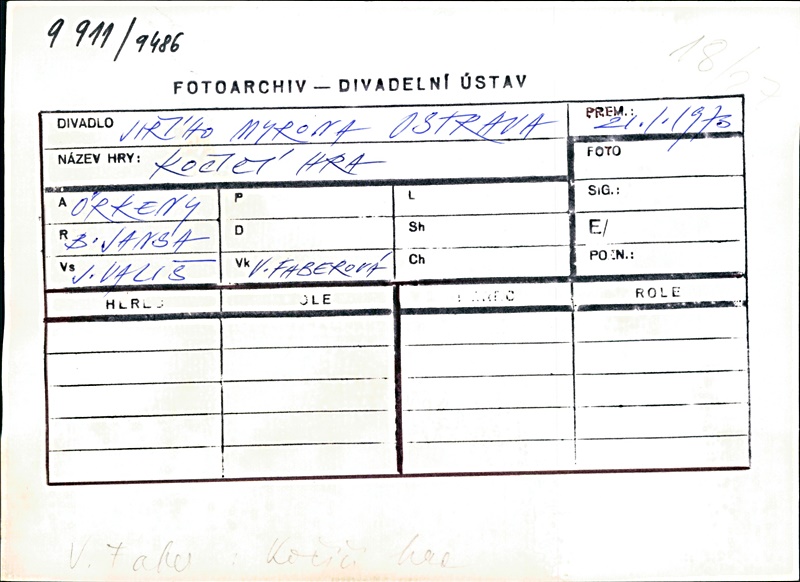 9 911/9486
FOTOARCHIV — DIVADELNÍ ÚSTAV
DIVADLO JIŘÍHO MYRONA OSTRAVA
PREM.: 21.1.1973
NÁZEV HRY: KOČIČÍ HRA
FOTO
A ÖRKENY
P
L
SIG.:
R B. JANSA
D
Sh
E/
Vs J. VALIŠ
Vk V. FABEROVÁ
Ch
POZN.:
HEREC ROLE HEREC ROLE
V. Faber : Kočičí hra